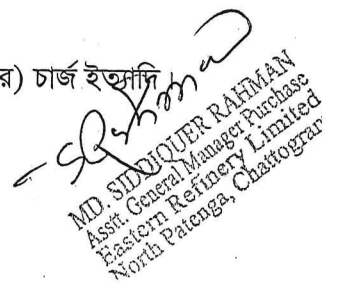 র) চার্জ ইত্যাদি
MD. SIDDIQUER RAHMAN
Asstt. General Manager Purchase
Eastern Refinery Limited
North Patenga, Chattogram